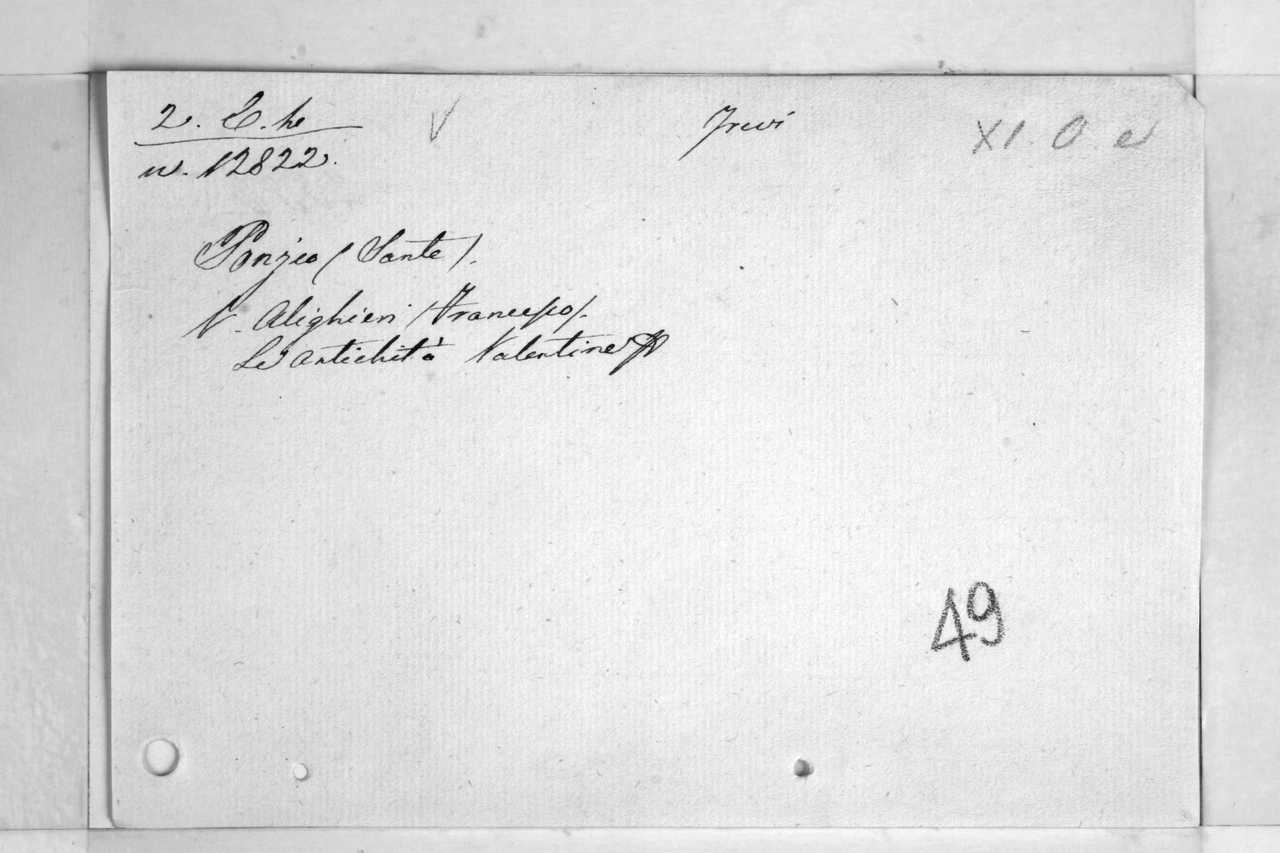 2. E. he
n. 12822.
V
Trevi
XI. O. e
Ponzio (Sante).
V. Alighieri (Francesco).
Le antichità Valentine
49